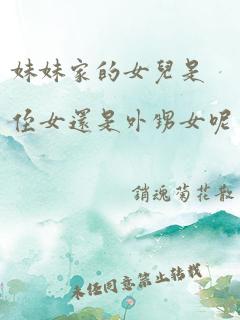 妹妹家的女兒是
侄女還是外甥女呢
銷魂菊花散
未經同意禁止轉載